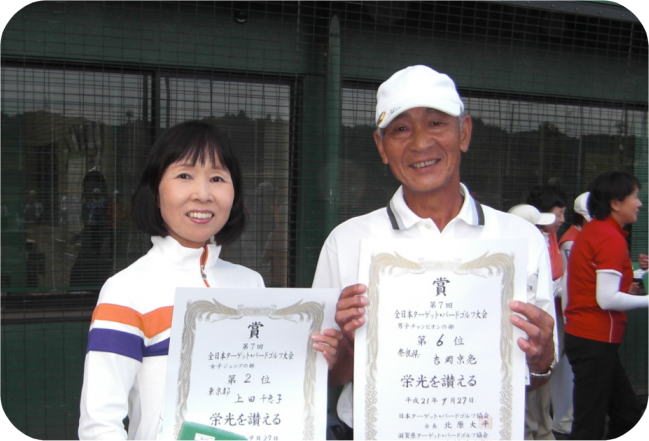 賞
第7回
全日本ターゲット・バードゴルフ大会
女子シニアの部
第2位
東京都 上田千恵子
栄光を讃える
9月27日
賞
第7回
全日本ターゲット・バードゴルフ大会
男子チャンピオンの部
第6位
奈良県 吉岡京亮
栄光を讃える
平成21年9月27日
日本ターゲット・バードゴルフ協会
会長 北原大平
滋賀県ターゲット・バードゴルフ協会